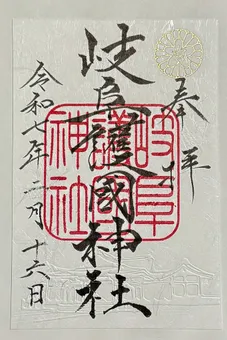 奉拝
岐阜護國神社
岐阜護國神社
令和七年二月十六日